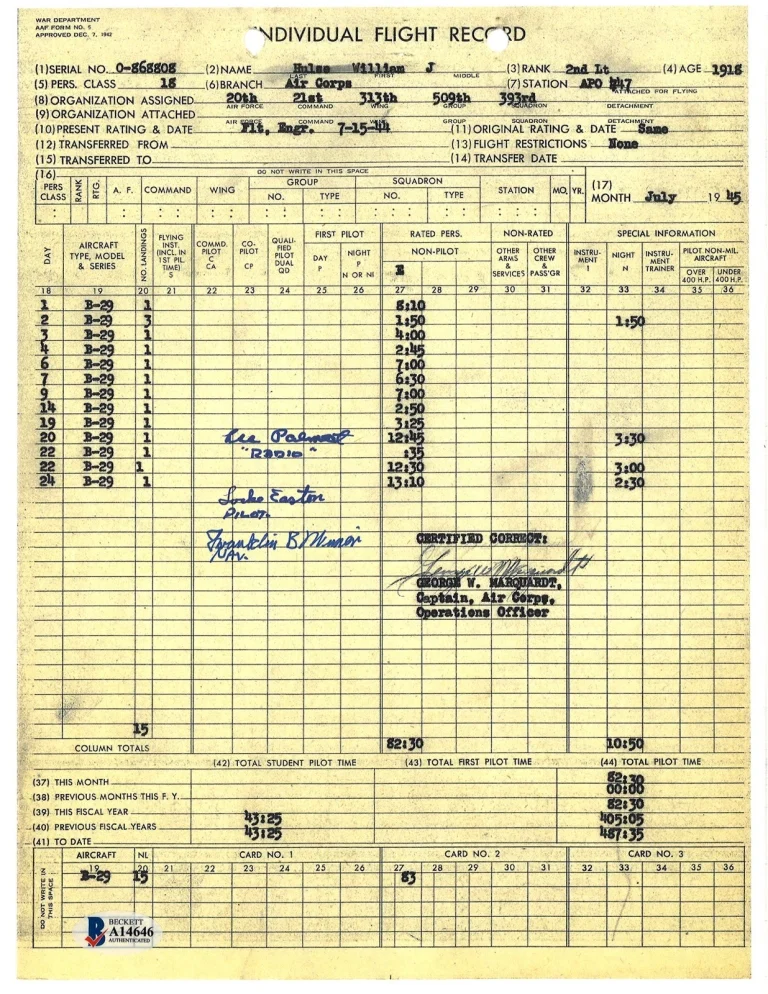 WAR DEPARTMENT
AAF FORM NO. 5
APPROVED DEC. 7, 1942
INDIVIDUAL FLIGHT RECORD
(1) SERIAL NO. O-868808 (2) NAME Hulse William J (3) RANK 2nd Lt (4) AGE 1918
LAST FIRST MIDDLE
(5) PERS. CLASS 18 (6) BRANCH Air Corps (7) STATION APO 247
ATTACHED FOR FLYING
(8) ORGANIZATION ASSIGNED 20th 21st 313th 509th 393rd
AIR FORCE COMMAND WING GROUP SQUADRON DETACHMENT
(9) ORGANIZATION ATTACHED
AIR FORCE COMMAND WING GROUP SQUADRON DETACHMENT
(10) PRESENT RATING & DATE Flt, Engr. 7-15-44 (11) ORIGINAL RATING & DATE Same
(12) TRANSFERRED FROM (13) FLIGHT RESTRICTIONS None
(15) TRANSFERRED TO (14) TRANSFER DATE
(16) DO NOT WRITE IN THIS SPACE
PERS CLASS RANK RTG. A. F. COMMAND WING GROUP NO. TYPE SQUADRON NO. TYPE STATION MO. YR. (17) MONTH July 19 45
DAY AIRCRAFT TYPE, MODEL & SERIES NO. LANDINGS FLYING INST. (INCL. IN 1ST PIL. TIME) S COMMD. PILOT C CA CO-PILOT CP QUALI-FIED PILOT DUAL QD FIRST PILOT DAY P NIGHT P N OR NI RATED PERS. NON-PILOT E NON-RATED OTHER ARMS & SERVICES OTHER CREW & PASS'GR SPECIAL INFORMATION INSTRU-MENT I NIGHT N INSTRU-MENT TRAINER PILOT NON-MIL. AIRCRAFT OVER 400 H.P. UNDER 400 H.P.
18 19 20 21 22 23 24 25 26 27 28 29 30 31 32 33 34 35 36
1 B-29 1 8:10
2 B-29 3 1:50 1:50
3 B-29 1 4:00
4 B-29 1 2:45
6 B-29 1 7:00
7 B-29 1 6:30
9 B-29 1 7:00
14 B-29 1 2:50
19 B-29 1 3:25
20 B-29 1 12:45 3:30
22 B-29 1 :35
22 B-29 1 12:30 3:00
24 B-29 1 13:10 2:30
Lee Palmert
"RADIO"
Locke Easton
PILOT.
Franklin B Wimer
NAV.
CERTIFIED CORRECT:
George W Marquardt
GEORGE W. MARQUARDT,
Captain, Air Corps,
Operations Officer
15
COLUMN TOTALS 82:30 10:50
(42) TOTAL STUDENT PILOT TIME (43) TOTAL FIRST PILOT TIME (44) TOTAL PILOT TIME
(37) THIS MONTH 82:30
(38) PREVIOUS MONTHS THIS F. Y. 00:00
(39) THIS FISCAL YEAR 82:30
(40) PREVIOUS FISCAL YEARS 43:25 405:05
(41) TO DATE 43:25 487:35
DO NOT WRITE IN THIS SPACE
AIRCRAFT NL CARD NO. 1 CARD NO. 2 CARD NO. 3
19 20 21 22 23 24 25 26 27 28 29 30 31 32 33 34 35 36
B-29 15 83
BECKETT
A14646
AUTHENTICATED